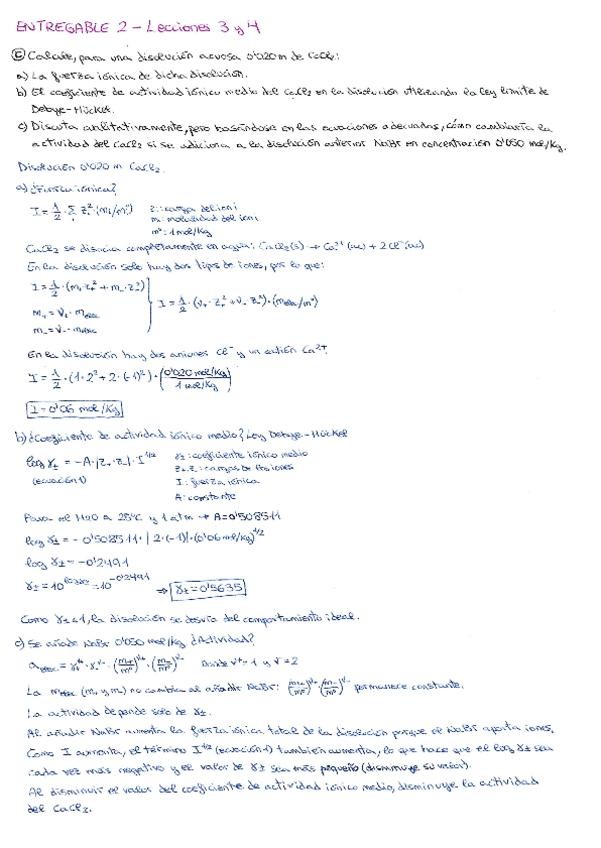 ENTREGABLE 2 - Lecciones 3 y 4
Calcule, para una disolución acuosa 0'020 m de CaCl₂:
a) La fuerza iónica de dicha disolución.
b) El coeficiente de actividad iónico medio del CaCl₂ en la disolución utilizando la ley límite de
Debye-Hückel.
c) Discuta cualitativamente, pero basándose en las ecuaciones adecuadas, cómo cambiaría la
actividad del CaCl₂ si se adiciona a la disolución anterior NaBr en concentración 0'050 mol/Kg.
Disolución 0'020 m CaCl₂.
a) ¿Fuerza iónica?
I = 1/2 · Σ zᵢ² (mᵢ/m°) zᵢ: carga del ion i
mᵢ: molalidad del ion i
m°: 1 mol/Kg
CaCl₂ se disocia completamente en agua: CaCl₂(s) → Ca²⁺(ac) + 2Cl⁻(ac)
En la disolución solo hay dos tipos de iones, por lo que:
I = 1/2 · (m₊ z₊² + m₋ z₋²)
m₊ = ν₊ · m
m₋ = ν₋ · m
I = 1/2 · (ν₊ · z₊² + ν₋ z₋²) · (m/m°)
En la disolución hay dos aniones Cl⁻ y un catión Ca²⁺
I = 1/2 · (1 · 2² + 2 · (-1)²) · (0'020 mol/Kg / 1 mol/Kg)
I = 0'06 mol/Kg
b) ¿Coeficiente de actividad iónico medio? Ley Debye-Hückel
log γ± = -A · |z₊ · z₋| · I^1/2 γ±: coeficiente iónico medio
(ecuación 1) z₊, z₋: cargas de los iones
I: fuerza iónica
A: constante
Para el H₂O a 25°C y 1 atm → A = 0'508511
log γ± = - 0'508511 · |2 · (-1)| · (0'06 mol/Kg)^1/2
log γ± = -0'2491
γ± = 10^log γ± = 10^-0'2491 ⇒ γ± = 0'5635
Como γ± < 1, la disolución se desvía del comportamiento ideal.
c) Se añade NaBr 0'050 mol/Kg ¿Actividad?
a = γ₊^ν₊ · γ₋^ν₋ · (m₊/m°)^ν₊ · (m₋/m°)^ν₋ donde ν₊ = 1 y ν₋ = 2
La m (m₊ y m₋) no cambia al añadir NaBr: (m₊/m°)^ν₊ · (m₋/m°)^ν₋ permanece constante.
La actividad depende solo de γ±.
Al añadir NaBr aumenta la fuerza iónica total de la disolución porque el NaBr aporta iones.
Como I aumenta, el término I^1/2 (ecuación 1) también aumenta, lo que hace que el log γ± sea
cada vez más negativo y el valor de γ± sea más pequeño (disminuye su valor).
Al disminuir el valor del coeficiente de actividad iónico medio, disminuye la actividad
del CaCl₂.